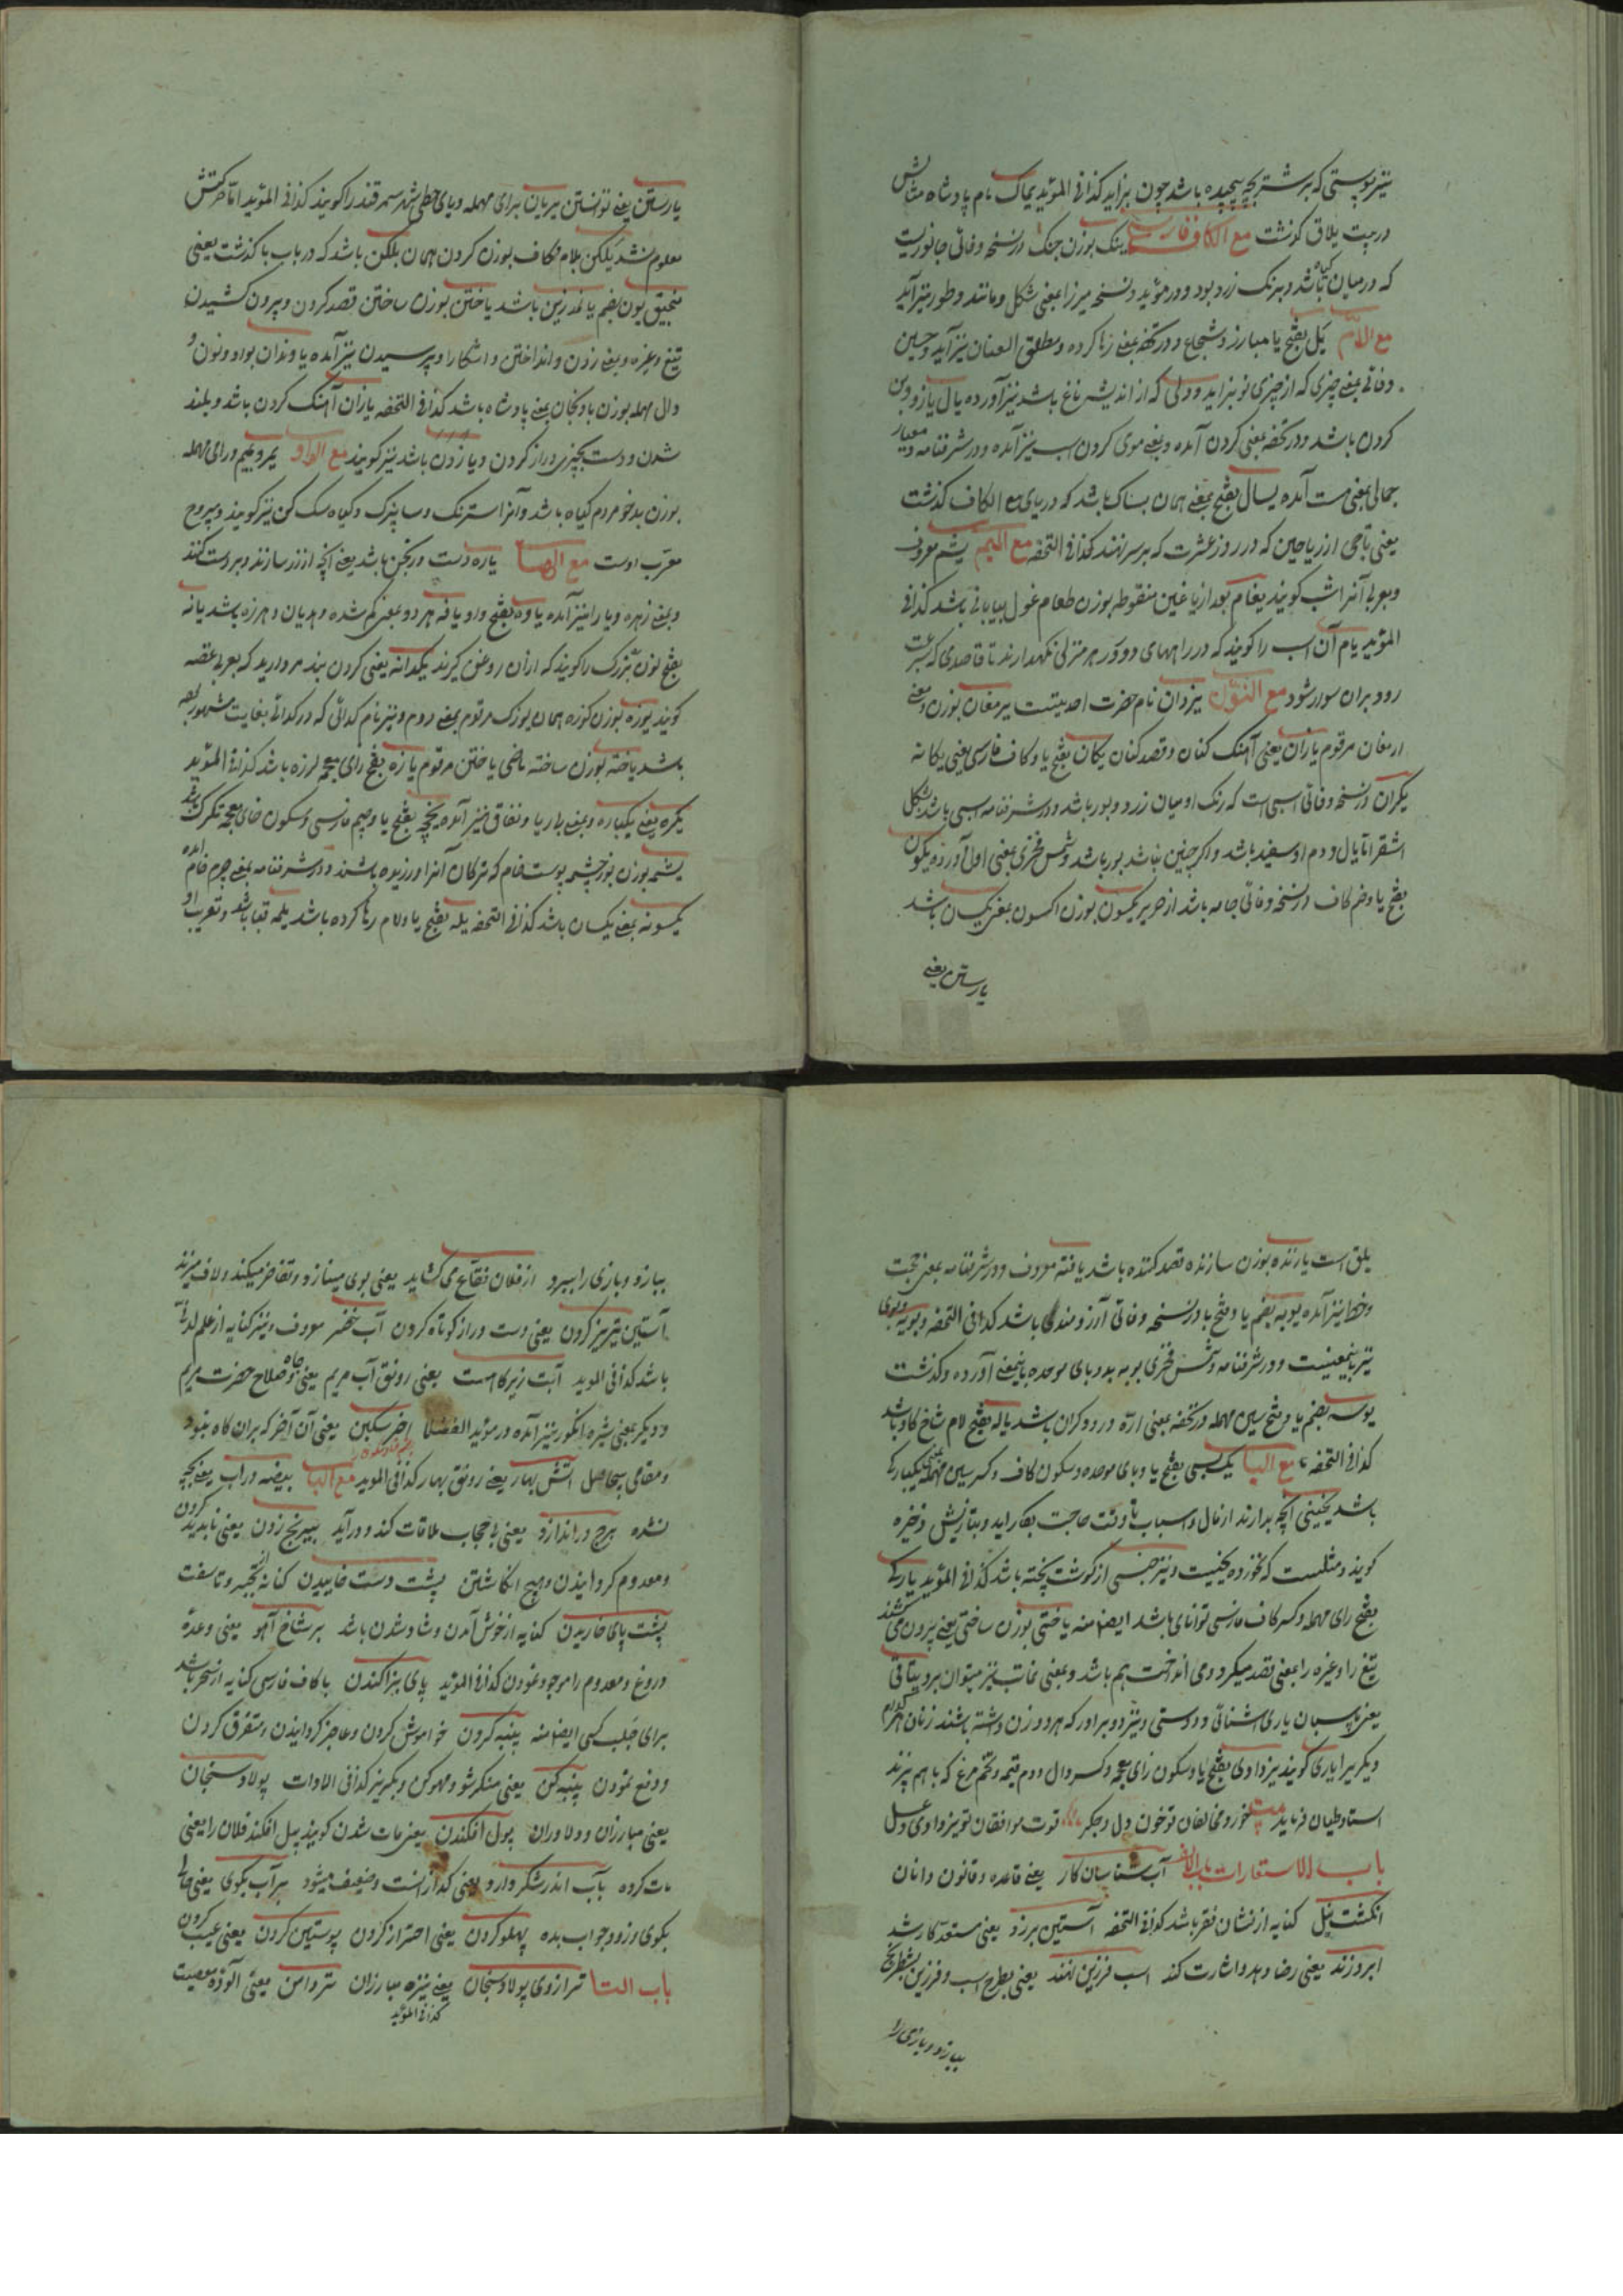 نیز پوستی که بر شتر بچه پیچیده باشد چون بزاید کذا فی المؤید یماک نام پادشاه
در بیت یلاق گذشت مع الکاف فارسی ینک بوزن جنک در نسخه وفائی جانوریست
که در میان کیاه باشد و برنک زرد بود و در مؤید و نسخه میرزا بمعنی شکل و مانند و طور نیز آید
مع اللام یل بفتح یا مبارز و شجاع و در تحفه بمعنی رها کرده و مطلق العنان نیز آید و حسین
وفائی بمعنی چیزی که از چیزی نو بزاید و دلی که از اندیشه فارغ باشد نیز آورده یال یازو
کردن باشد و در تحفه بمعنی کردن آمده و بمعنی موی کردن اسب نیز آمده و در شرفنامه و معیار
جمالی بمعنی است آمده یسال بفتح بمعنی همان بساک باشد که در بای مع الکاف گذشت
یعنی تاجی از ریاحین که در روز عشرت که بر سر نهند کذا فی التحفه مع المیم یشم معروف
و بعربی آنرا یشب کویند یغام بعد از یا غین منقوطه بوزن طعام غول بیابانی باشد کذا فی
المؤید یام آن اسب را کویند که در راههای دور در هر منزلی نکهدارند تا قاصدی که بسرعت
رود بران سوار شود مع النون یزدان نام حضرت احدیتست یرمغان بوزن و معنی
ارمغان مرقوم یازان یعنی آهنک کنان و قصد کنان یکان بفتح یا و کاف فارسی یعنی یکانه
یکران در نسخه وفائی اسبی است که رنک او میان زرد و بور باشد و در شرفنامه اسبی باشد بشکل
اشقر اما یال و دم او سفید باشد و اگر چنین نباشد بور باشد و شمس فخری بمعنی اول آورده یکون
بفتح یا و ضم کاف در نسخه وفائی جامه باشد از حریر یکسون بوزن اکسون بمعنی یکسان باشد
یارستن یعنی
یارستن یعنی توانستن یریان برای مهمله و یای حطی شهر سمرقند را کویند کذا فی المؤید اما حرکتش
معلوم نشد یلکن بلام و کاف بوزن کردن همان بلکن باشد که در باب با گذشت یعنی
منجنیق یون بضم یا نمد زین باشد یاختن بوزن ساختن قصد کردن و بیرون کشیدن
تیغ و غیره و بمعنی زدن و انداختن و اشکارا و پرسیدن نیز آمده یاوندان بواو و نون و
دال مهمله بوزن بادنجان بمعنی پادشاه باشد کذا فی التحفه یازان آهنک کردن باشد و بلند
شدن و دست بچیزی دراز کردن و یازدن باشد نیز کویند مع الواو یمرو بمیم و رای مهمله
بوزن بدخو مردم کیاه باشد و آنرا استرنک و سابیزک و کیاه سک کن نیز کویند و یبروح
معرب اوست مع الها یاره دست ورنجن باشد یعنی آنچه از زر سازند و بر دست کنند
و بمعنی زهره و یارا نیز آمده یاوه بفتح واو یافه هر دو بمعنی کم شده و هذیان و هرزه باشد یانه
بفتح نون بزرک را کویند که ازان روغن کیرند یکدانه یعنی کردن بند مروارید که بعربی عقصه
کویند یوزه بوزن کوزه همان یوزک مرقوم بمعنی دوم و نیز نام کدائی که در کدائی بغایت مشهور
باشد یاخته بوزن ساخته ماضی یاختن مرقوم یازه بفتح زای معجمه لرزه باشد کذا فی المؤید
یکره یعنی یکباره و بمعنی بی ریا و نفاق نیز آمده یخچه بفتح یا و جیم فارسی و سکون خای معجمه تکرک باشد
یشمه بوزن پوست خام که ترکان آنرا ورزیده باشند و در شرفنامه بمعنی چرم خام آمده
یکسونه بمعنی یکسان باشد کذا فی التحفه یله بفتح یا و لام رها کرده باشد یلمه قبا باشد و تعریب او
یلمق است یازنده بوزن سازنده قصد کننده باشد یافته معروف و در شرفنامه بمعنی حجت
و خط نیز آمده یوبه بضم یا و فتح با در نسخه وفائی آرزومندی باشد کذا فی التحفه و بویه
نیز باینمعنیست و در شرفنامه و شمس فخری یوبه بدو بای موحده باینمعنی آورده و گذشت
یوسه بضم یا و فتح سین مهمله در تحفه بمعنی اره درودکران باشد یاله بفتح لام شاخ کاو باشد
کذا فی التحفه مع الیا یکبسی بفتح یا و بای موحده و سکون کاف و کسر سین مهمله بمعنی یکبارکی
باشد یخنی آنچه بدارند از مال و اسباب تا وقت حاجت بکار آید و بتازیش ذخیره
کویند و مثلست که نخورده یخنیست و نیز جنسی از کوشت پخته باشد کذا فی المؤید یارکی
بفتح رای مهمله و کسر کاف فارسی توانای باشد ایضا منه یاختی بوزن ساختی یعنی بیرون می کشند
تیغ را و غیره را بمعنی قصد میکرد و می انداخت هم باشد و بمعنی غایب نیز میتوان برد یتاقی
یعنی پاسبان یاری اشنائی و دوستی و نیز دو برادر که هر دو زن داشته باشند زنان هر کدام
دیکریرا یاری کویند یزدادی بفتح یا و سکون زای معجمه و کسر دال دوم قیمه و تخم مرغ که باهم پزند
استاد طیان فرماید بیت خورد مخالفان تو خون دل و جکر قوت موافقان تو یزدادی و عسل
باب الاستعارات باب الالف آب شناسان کار یعنی قاعده و قانون دانان
انکشت نیل کنایه از نشان فقر باشد کذا فی التحفه آستین برزد یعنی مستعد کار شد
ابرو زند یعنی رضا دهد و اشارت کند اسب فرزین نهند یعنی بطرح اسب و فرزین شطرنج
ببازد و بازی را
ببازد و بازی را ببرد از فلان فقاع می کشاید یعنی بوی مینازد و تفاخر میکند و لاف میزند
آستین تیریز کردن یعنی دست دراز کوتاه کردن آب خضر معروف و نیز کنایه از علم لدنی
باشد کذا فی المؤید آبت زیرکاهست یعنی رونق آب مریم یعنی جاه و صلاح حضرت مریم
و دیکر بمعنی شیره انکور نیز آمده در مؤید الفضلا آخر سنکین یعنی آن آخر که بران کاه نبود
و مقامی بیحاصل آتش بهار یعنی رونق بهار کذا فی المؤید مع البا بیضه در آب یعنی بچه
نشده برج دراندازد یعنی بی حجاب ملاقات کند و درآید ببیرنج زدن یعنی ناپدید کردن
و معدوم کردانیدن و هیچ انکاشتن پشت دست خاییدن کنایه از تحیر و تاسف
پشت پای خاریدن کنایه از خوش آمدن و شاد شدن باشد بر شاخ آهو یعنی وعده
دروغ و معدوم را موجود نمودن کذا فی المؤید پای بز افکندن با کاف فارسی کنایه از سحر باشد
برای جلب کسی ایضا منه پنبه کردن خواموش کردن و عاجز کردانیدن و متفرق کردن
و دفع نمودن پنبه کن یعنی منکر شو و محو کن و بکریز کذا فی الادات پولاد سنجان
یعنی مبارزان و دلاوران پول افکندن یعنی مات شدن کویند پیل افکند فلان را یعنی
مات کرده بآب اندر شکر دارد یعنی کدازانست و ضعیف میشود بر آب بکوی یعنی حالی
بکوی و زود جواب بده پهلو کردن یعنی احتراز کردن پوستین کردن یعنی عیب کردن
باب التا ترازوی پولاد سنجان یعنی نیزه مبارزان تر دامن یعنی آلوده معصیت
کذا فی المؤید